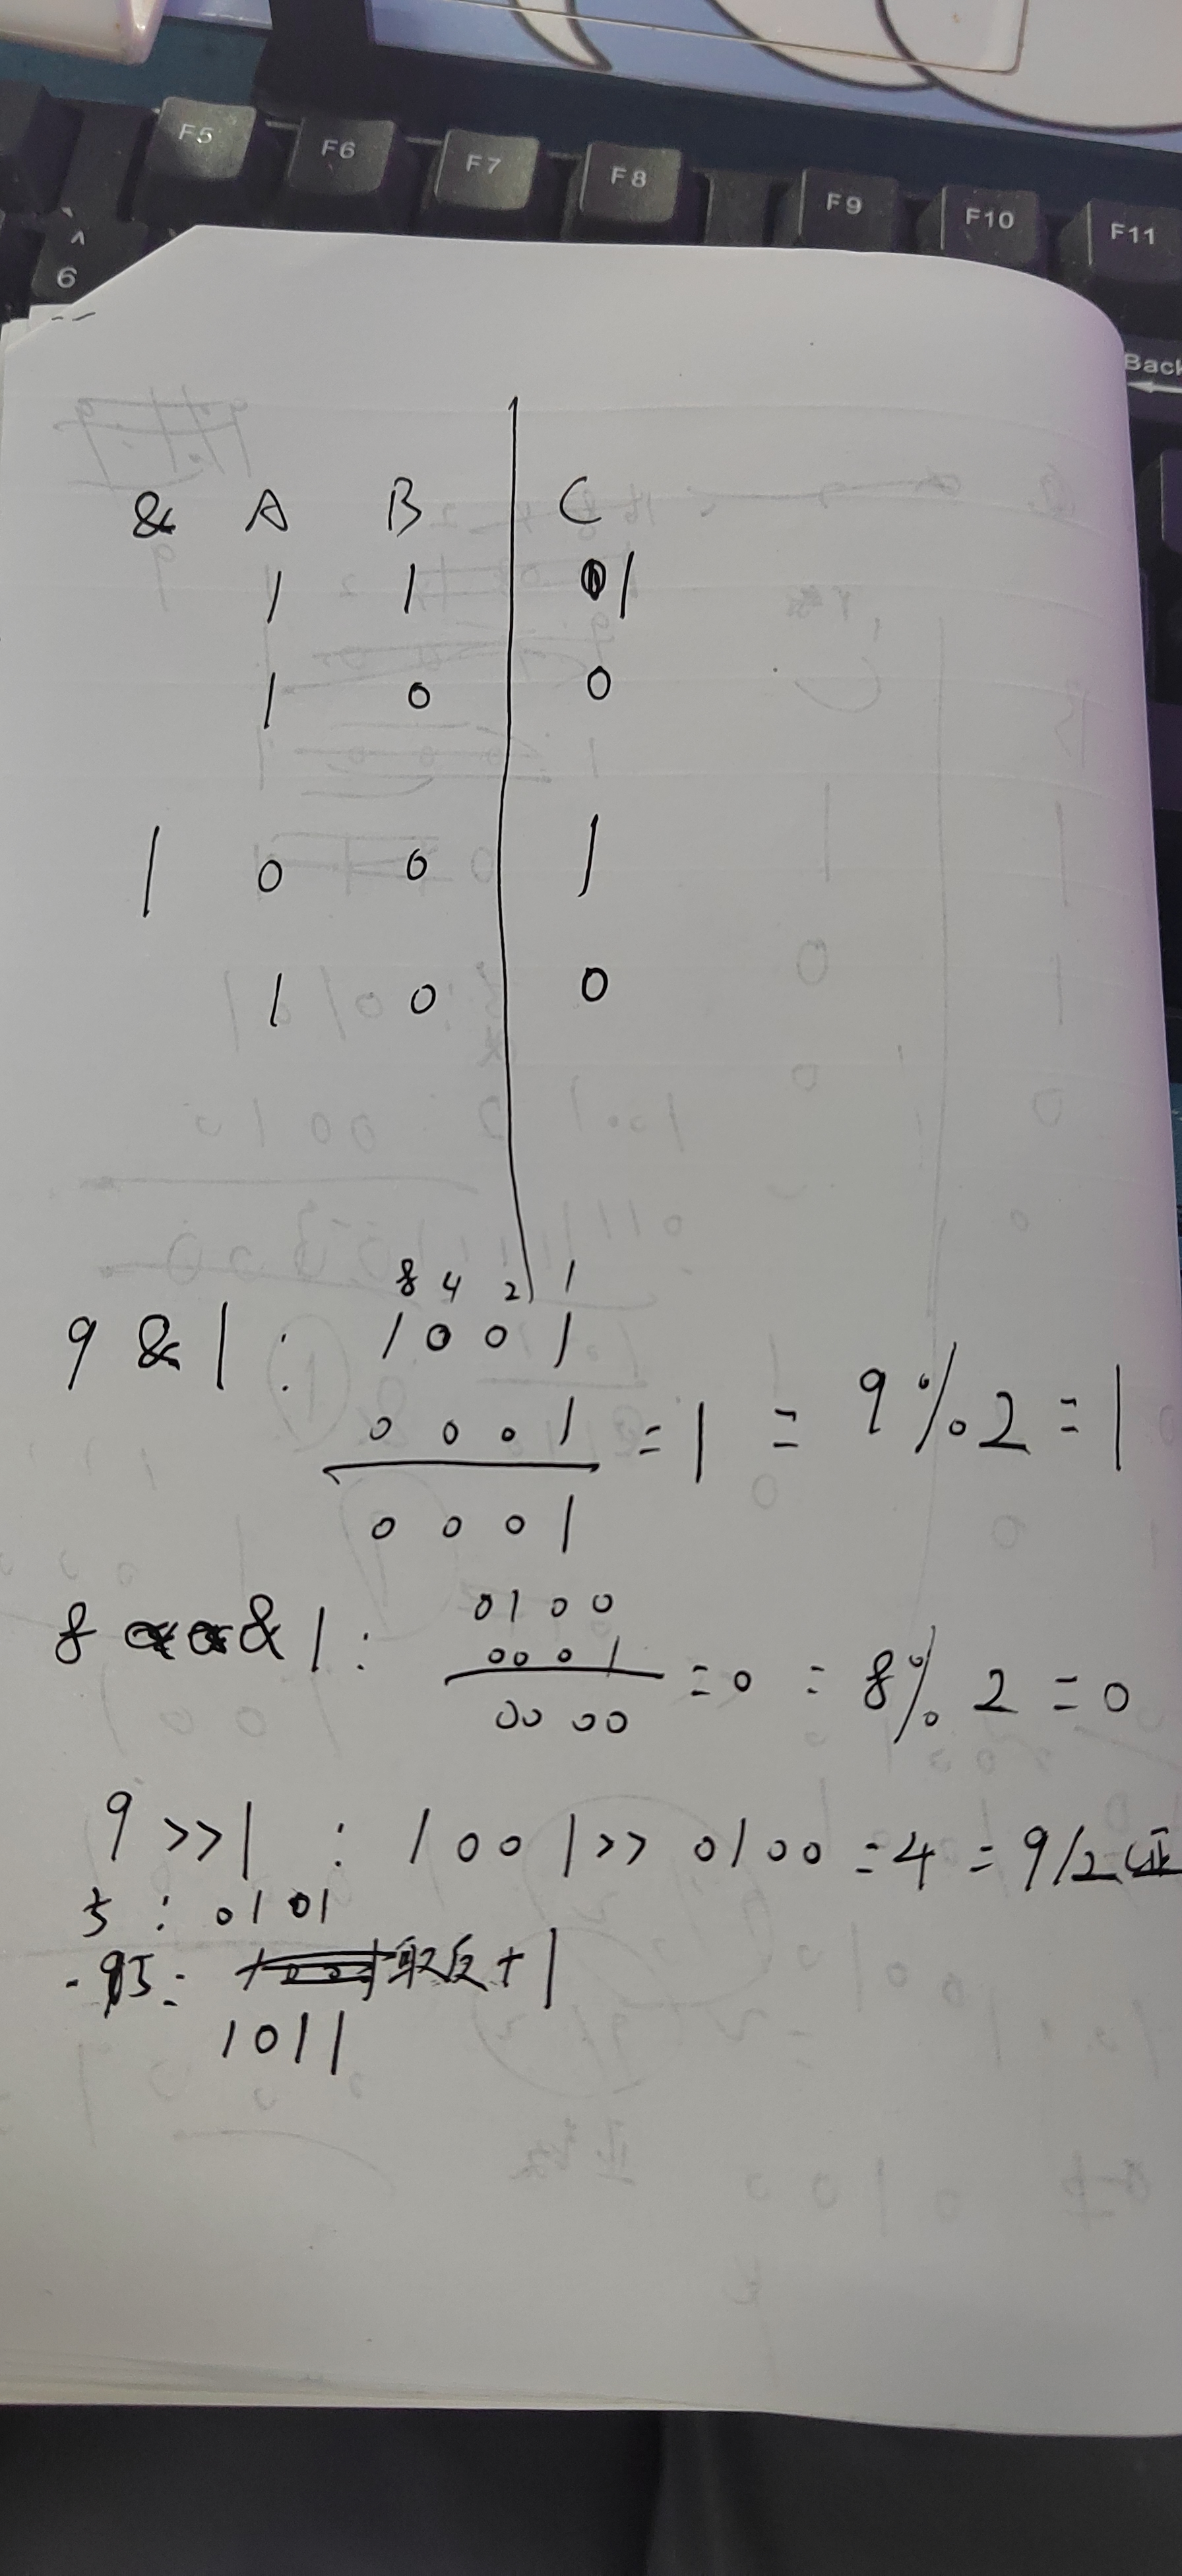 F5 F6 F7 F8 F9 F10 F11
^
6
Back
& A B C
1 1 1
1 0 0
| 0 0 1
1 0 0
8 4 2 1
9 & 1 : 1 0 0 1
0 0 0 1 = 1 = 9 % 2 = 1
0 0 0 1
8 & 1 : 0 1 0 0
0 0 0 1 = 0 = 8 % 2 = 0
0 0 0 0
9 >> 1 : 1 0 0 1 >> 0 1 0 0 = 4 = 9 / 2 (正
5 : 0 1 0 1
-5 : 取反 + 1
1 0 1 1